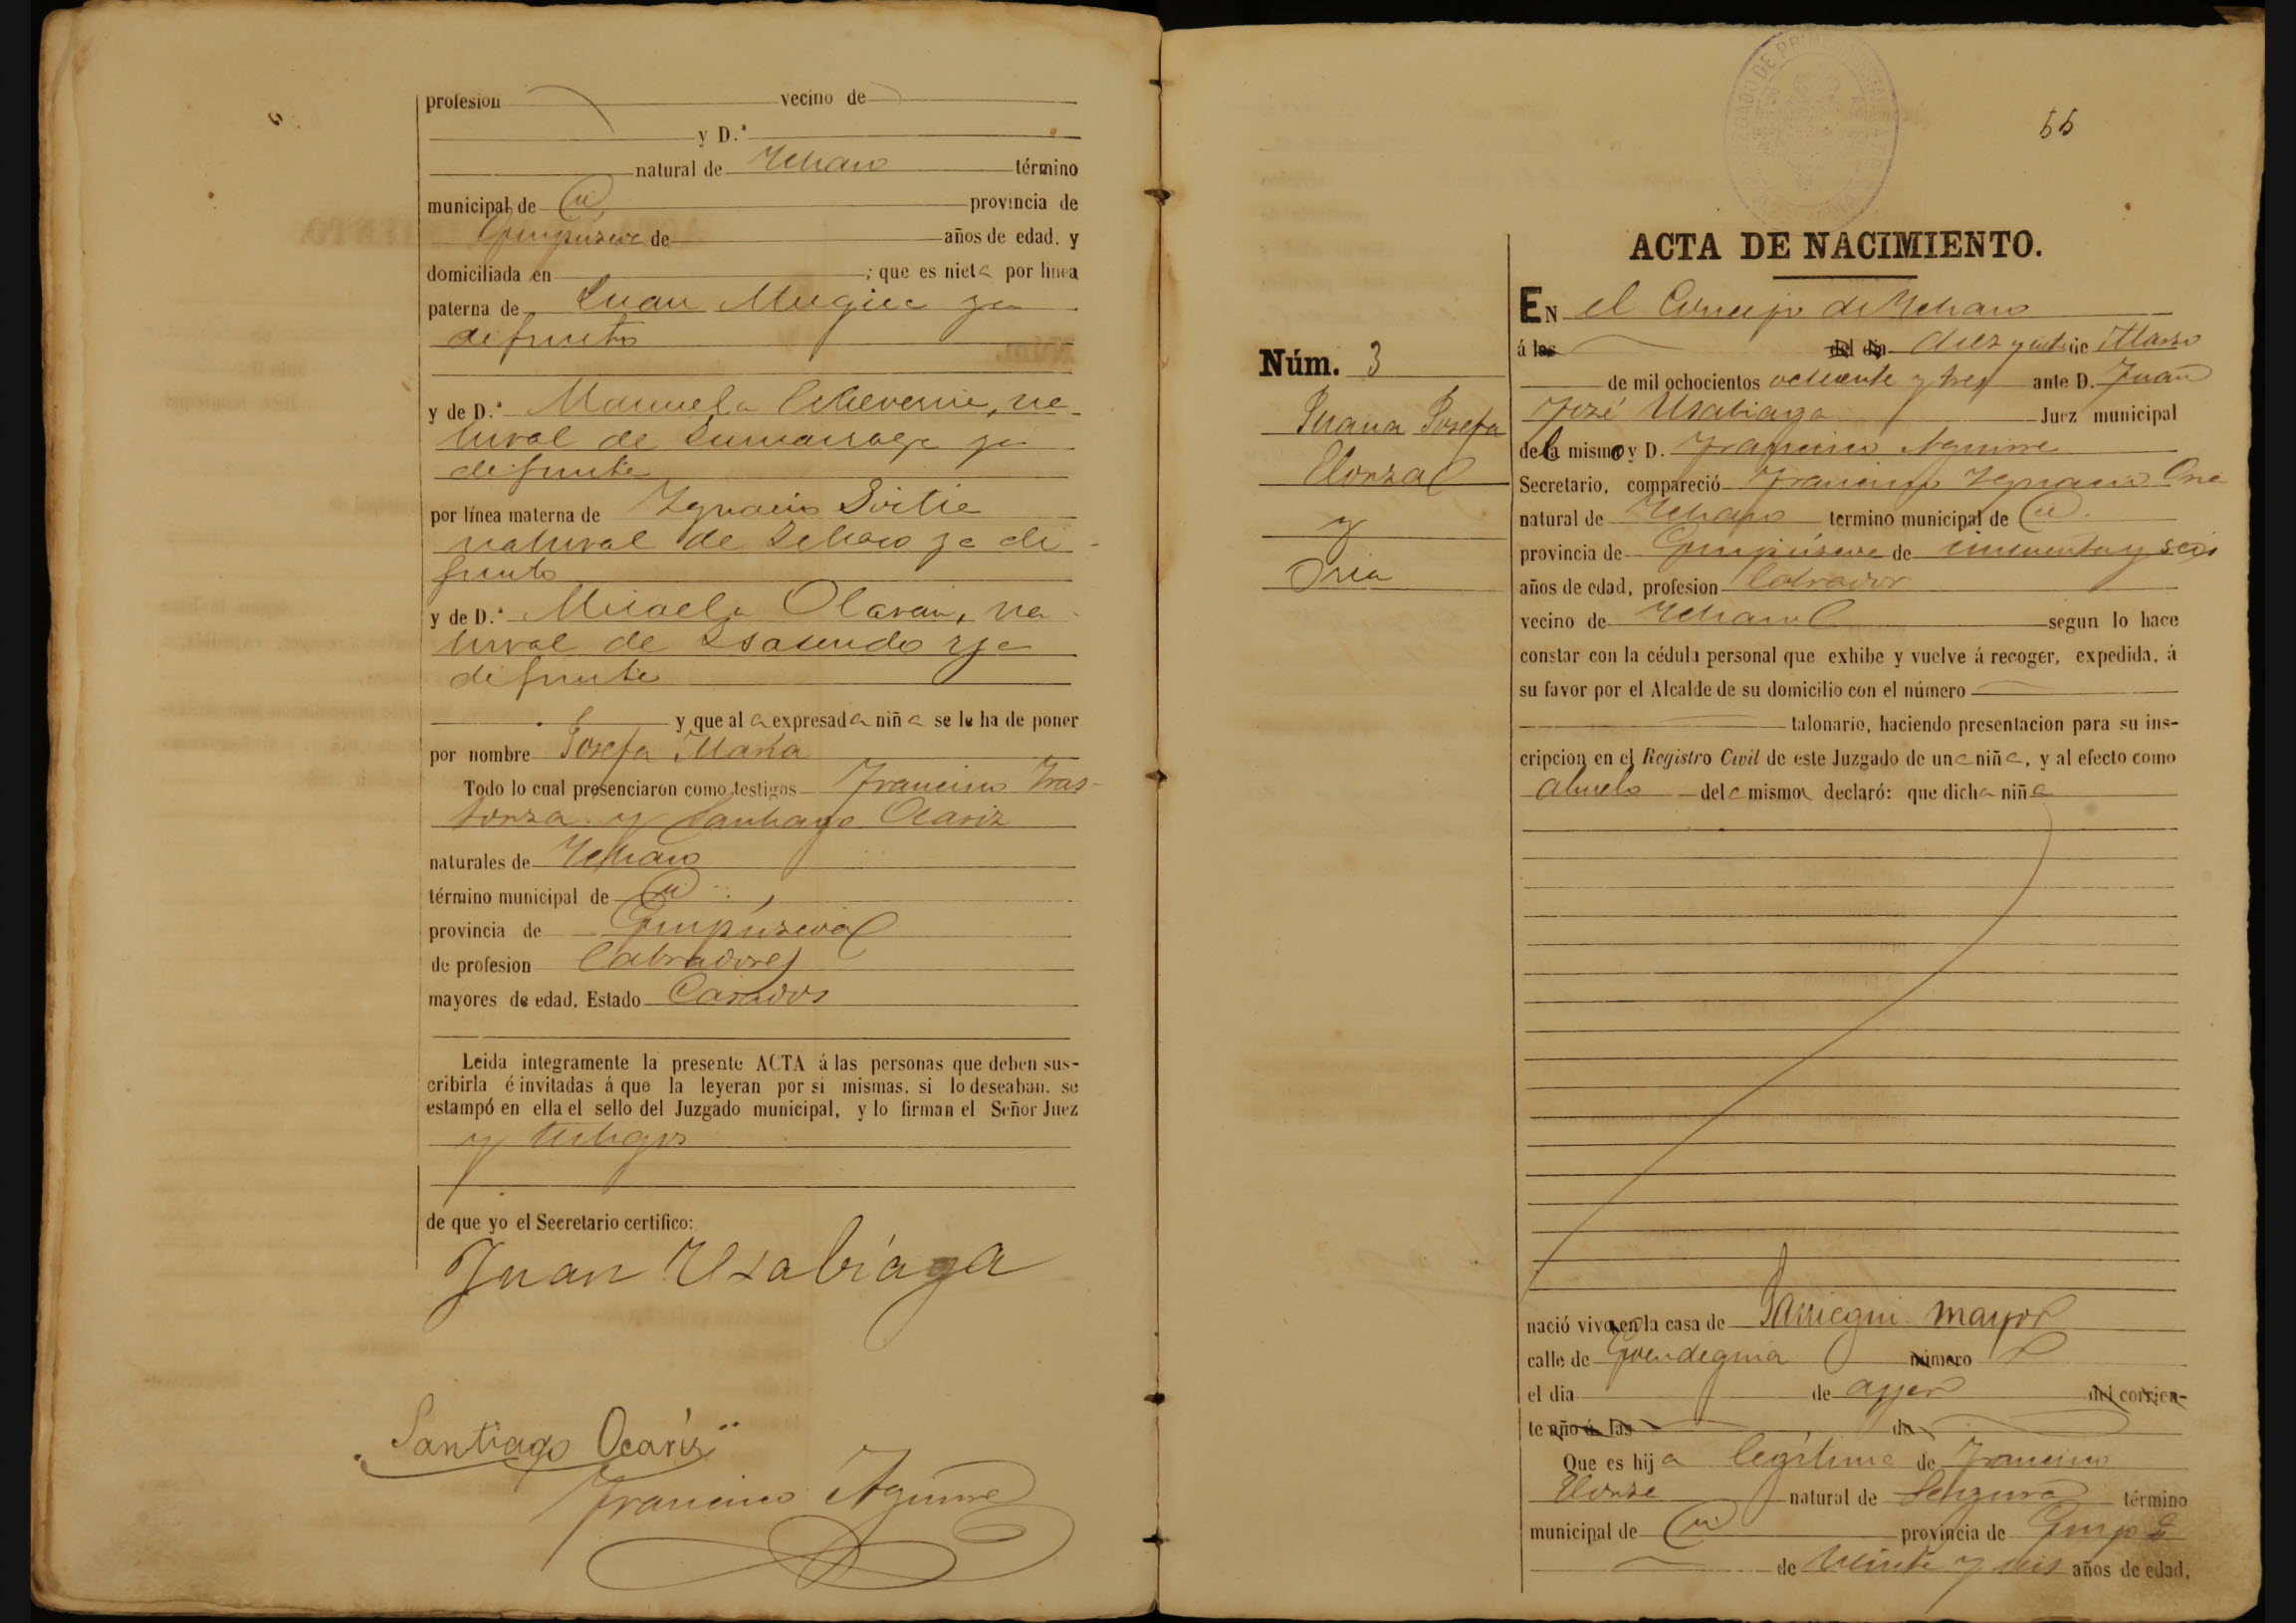 profesion vecino de
y D.ª
natural de Ychaso término
municipal de id provincia de
Guipúzcoa de años de edad, y
domiciliada en ; que es nieta por línea
paterna de Juan Mugica ya
difunto
y de D.ª Manuela Echeverria, na-
tural de Zumarraga ya
difunta
por línea materna de Ygnacio
natural de Ychaso ya di-
funto
y de D.ª Micaela Olaran, na-
tural de Isasondo ya
difunta
y que al a expresada niña se le ha de poner
por nombre Josefa Maria
Todo lo cual presenciaron como testigos Francisco Iras-
torza y Santiago Ocariz
naturales de Ychaso
término municipal de id
provincia de Guipúzcoa
de profesion Labradores
mayores de edad, Estado Casados
Leida integramente la presente ACTA á las personas que deben sus-
cribirla é invitadas á que la leyeran por si mismas, si lo deseaban, se
estampó en ella el sello del Juzgado municipal, y lo firman el Señor Juez
y testigos
de que yo el Secretario certifico:
Juan Usabiaga
Santiago Ocáriz
Francisco Aguirre
55
ACTA DE NACIMIENTO.
Núm. 3
Juana Josefa
Elorza
y
Oria
EN el Concejo de Ychaso
á las del dia diez y siete de Marzo
de mil ochocientos ochenta y tres ante D. Juan
José Usabiaga Juez municipal
del mismo y D. Francisco Aguirre
Secretario, compareció Francisco Ygnacio Oria
natural de Ychaso termino municipal de id.
provincia de Guipúzcoa de cincuenta y seis
años de edad, profesion Labrador
vecino de Ychaso segun lo hace
constar con la cédula personal que exhibe y vuelve á recoger, expedida, á
su favor por el Alcalde de su domicilio con el número
talonario, haciendo presentacion para su ins-
cripcion en el Registro Civil de este Juzgado de una niña, y al efecto como
abuelo de la misma declaró: que dicha niña
nació viva en la casa de mayor
calle de número
el dia de ayer del corrien-
te año á las de
Que es hija legítima de Francisco
Elorza natural de Segura término
municipal de id provincia de Guip.ª
de veinte y seis años de edad,